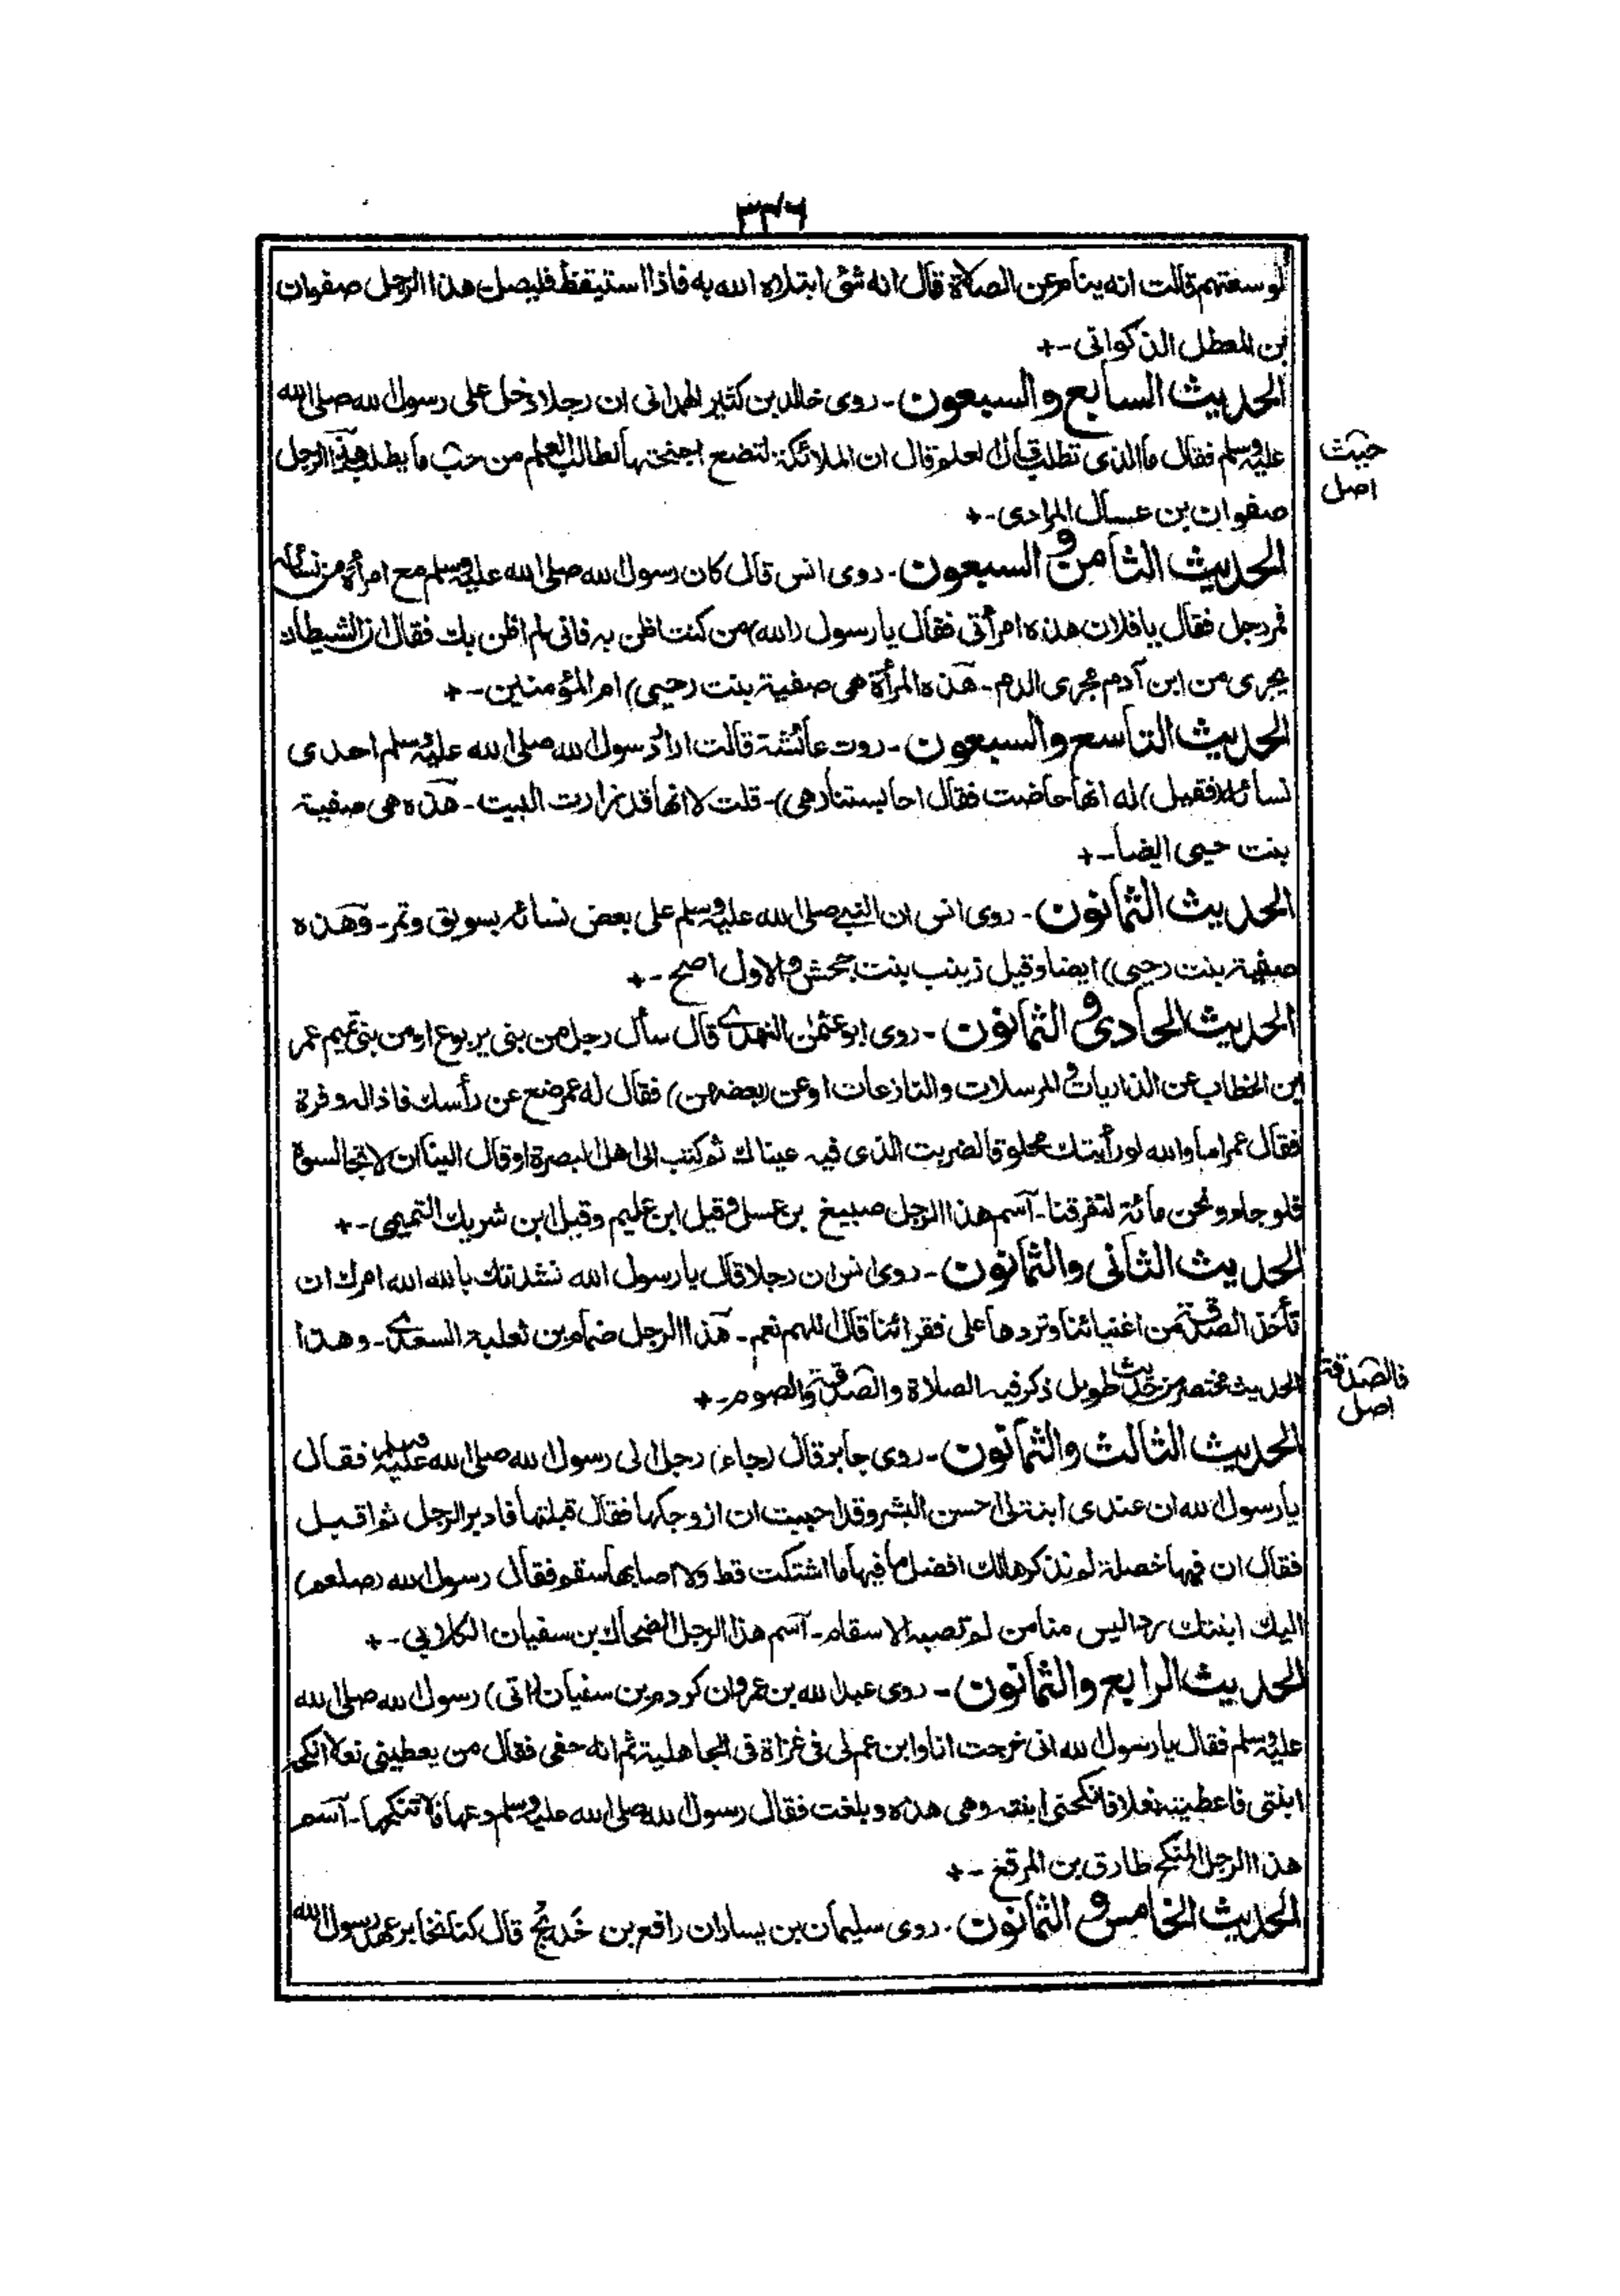 ٣٣٦
لوسعتهم قالت انه ينام عن الصلاة قال انه شئ ابتلاه الله به فاذا استيقظ فليصل هذا الرجل صفوان
بن المعطل الذكوانى -+
الحديث السابع والسبعون - روى خالد بن كثير الهمدانى ان رجلا دخل على رسول الله صلى الله
عليه وسلم فقال ما الذى تطلب قال العلم قال ان الملائكة لتضع اجنحتها لطالب العلم من حب ما يطلب هذا الرجل
حيث
اصل
صفوان بن عسال المرادى -+
الحديث الثامن و السبعون - روى انس قال كان رسول الله صلى الله عليه وسلم مع امرأة من نسائه
فمر رجل فقال يا فلان هذه امرأتى فقال يا رسول (الله) من كنت اظن به فانى لم اظن بك فقال ان الشيطان
يجرى من ابن آدم مجرى الدم - هذه المرأة هى صفية بنت (حيى) ام المؤمنين -+
الحديث التاسع والسبعون - روت عائشة قالت اراد رسول الله صلى الله عليه وسلم احدى
نسائه (فقيل) له انها حاضت فقال احابستنا (هى) - قلت لا انها قد زارت البيت - هذه هى صفية
بنت حيى ايضا -+
الحديث الثمانون - روى انس ان النبى صلى الله عليه وسلم على بعض نسائه بسويق وتمر - وهذه
صفية بنت (حيى) ايضا وقيل زينب بنت جحش والاول اصح -+
الحديث الحادى و الثمانون - روى ابو عثمان النهدى قال سأل رجل من بنى يربوع او من بنى تميم عمر
ابن الخطاب عن الذاريات والمرسلات والنازعات او عن (بعضهن) فقال له عمر ضع عن رأسك فاذا له وفرة
فقال عمر اما والله لو رأيتك محلوقا لضربت الذى فيه عيناك ثم كتب الى اهل البصرة او قال الينا ان لا تجالسوه
فلو جاء ونحن مائة لتفرقنا - اسم هذا الرجل صبيغ بن عسل وقيل ابن عليم وقيل ابن شريك التميمى -+
الحديث الثانى والثمانون - روى انس ان رجلا قال يا رسول الله نشدتك بالله الله امرك ان
تأخذ الصدقة من اغنيائنا وتردها على فقرائنا قال اللهم نعم - هذا الرجل ضمام بن ثعلبة السعدى - وهذا
الحديث مختصر من حديث طويل ذكر فيه الصلاة والصدقة والصوم -+
فالصدقة
اصل
الحديث الثالث والثمانون - روى جابر قال (جاء) رجل الى رسول الله صلى الله عليه وسلم فقال
يا رسول الله ان عندى ابنة لى احسن البشر وقد احببت ان ازوجكها فقال قبلتها فادبر الرجل ثم اقبل
فقال ان فيها خصلة لم نذكرها لك افضل ما فيها ما اشتكت قط ولا اصابها سقم فقال رسول الله (صلعم)
اليك ابنتك ليس منا من لم تصبه الاسقام - اسم هذا الرجل الضحاك بن سفيان الكلابى -+
الحديث الرابع والثمانون - روى عبد الله بن عمرو ان كردم بن سفيان (اتى) رسول الله صلى الله
عليه وسلم فقال يا رسول الله انى خرجت انا وابن عم لى فى غزاة فى الجاهلية ثم انه حفى فقال من يعطينى نعلا انكحه
ابنتى فاعطيته نعلا فانكحنى ابنته وهى هذه وبلغت فقال رسول الله صلى الله عليه وسلم دعها فلا تنكحها - اسم
هذا الرجل المنكح طارق بن المرقع -+
الحديث الخامس و الثمانون - روى سليمان بن يسار ان رافع بن خديج قال كنا نخابر عهد رسول الله